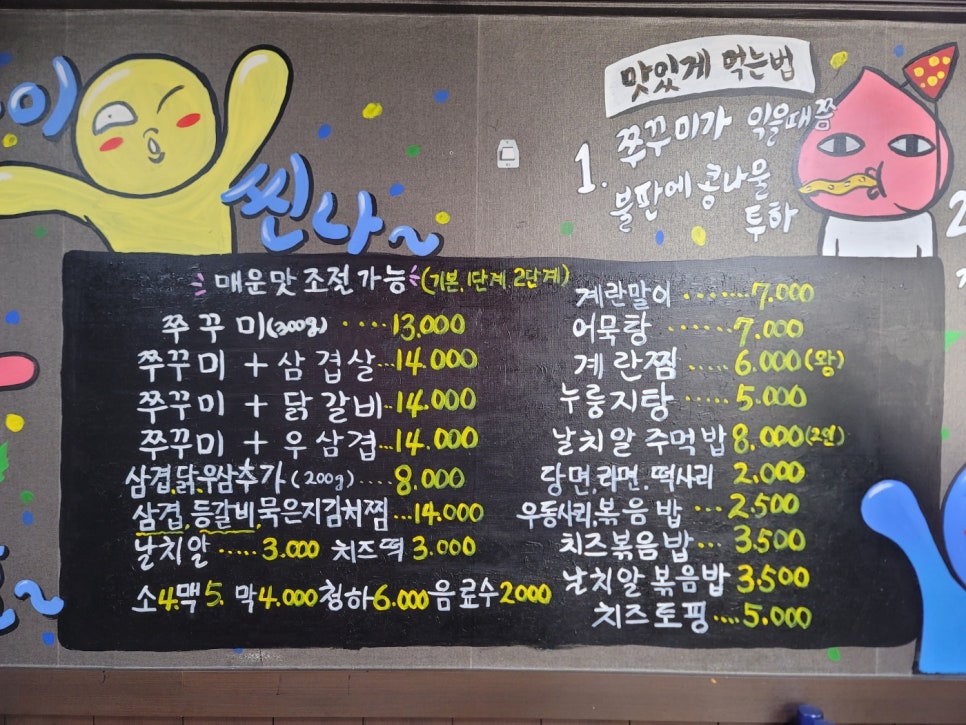 이
씬나~
맛있게 먹는법
1. 쭈꾸미가 익을때쯤
불판에 콩나물
투하
2
매운맛 조절가능 (기본, 1단계, 2단계)
쭈꾸미(300g) ····13.000
쭈꾸미 + 삼겹살...14.000
쭈꾸미 + 닭갈비..14.000
쭈꾸미 + 우삼겹..14.000
삼겹,닭,우삼추가 (200g)....8.000
삼겹,등갈비,묵은지김치찜...14.000
날치알 .....3.000 치즈떡 3.000
소4.맥5. 막4.000청하6.000음료수2000
계란말이 ·······7.000
어묵탕 ······7.000
계란찜 .....6.000(왕)
누룽지탕 .....5.000
날치알 주먹밥 8.000(2인)
당면,라면,떡사리 2.000
우동사리,볶음밥 ...2.500
치즈볶음밥... 3.500
날치알 볶음밥 3.500
치즈토핑....5.000